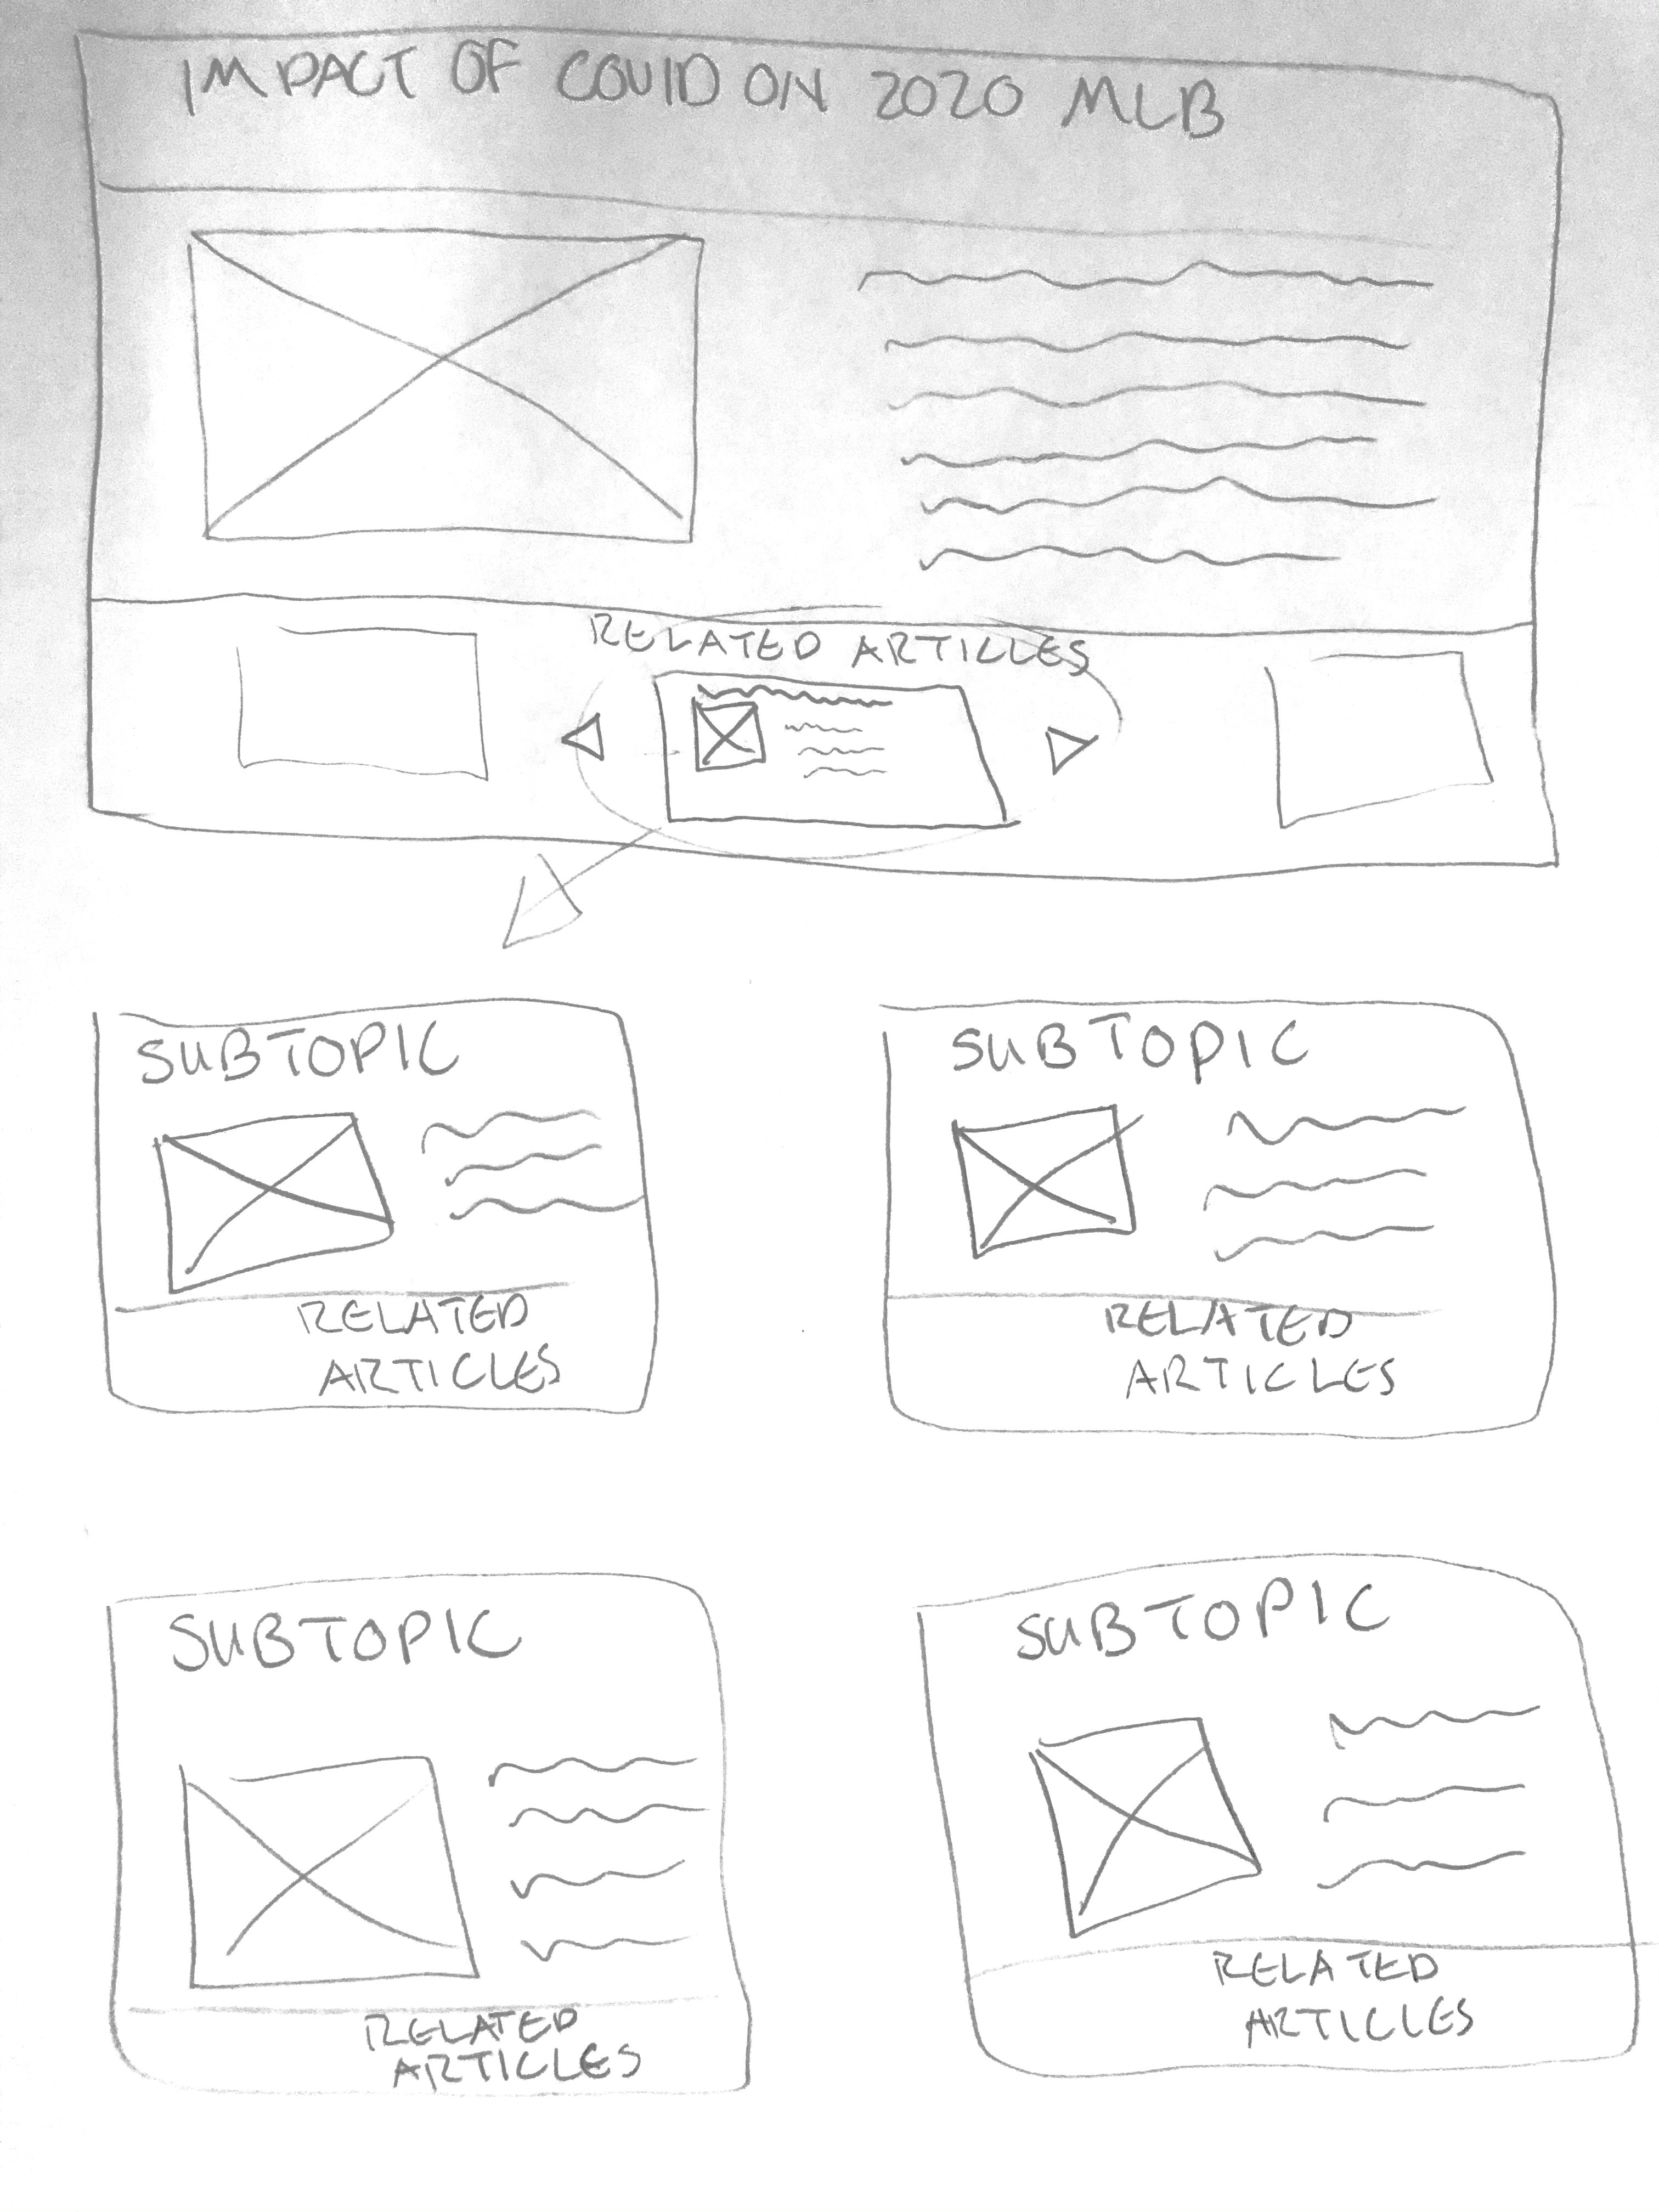 IMPACT OF COVID ON 2020 MLB
RELATED ARTICLES
SUBTOPIC
RELATED
ARTICLES
SUBTOPIC
RELATED
ARTICLES
SUBTOPIC
RELATED
ARTICLES
SUBTOPIC
RELATED
ARTICLES